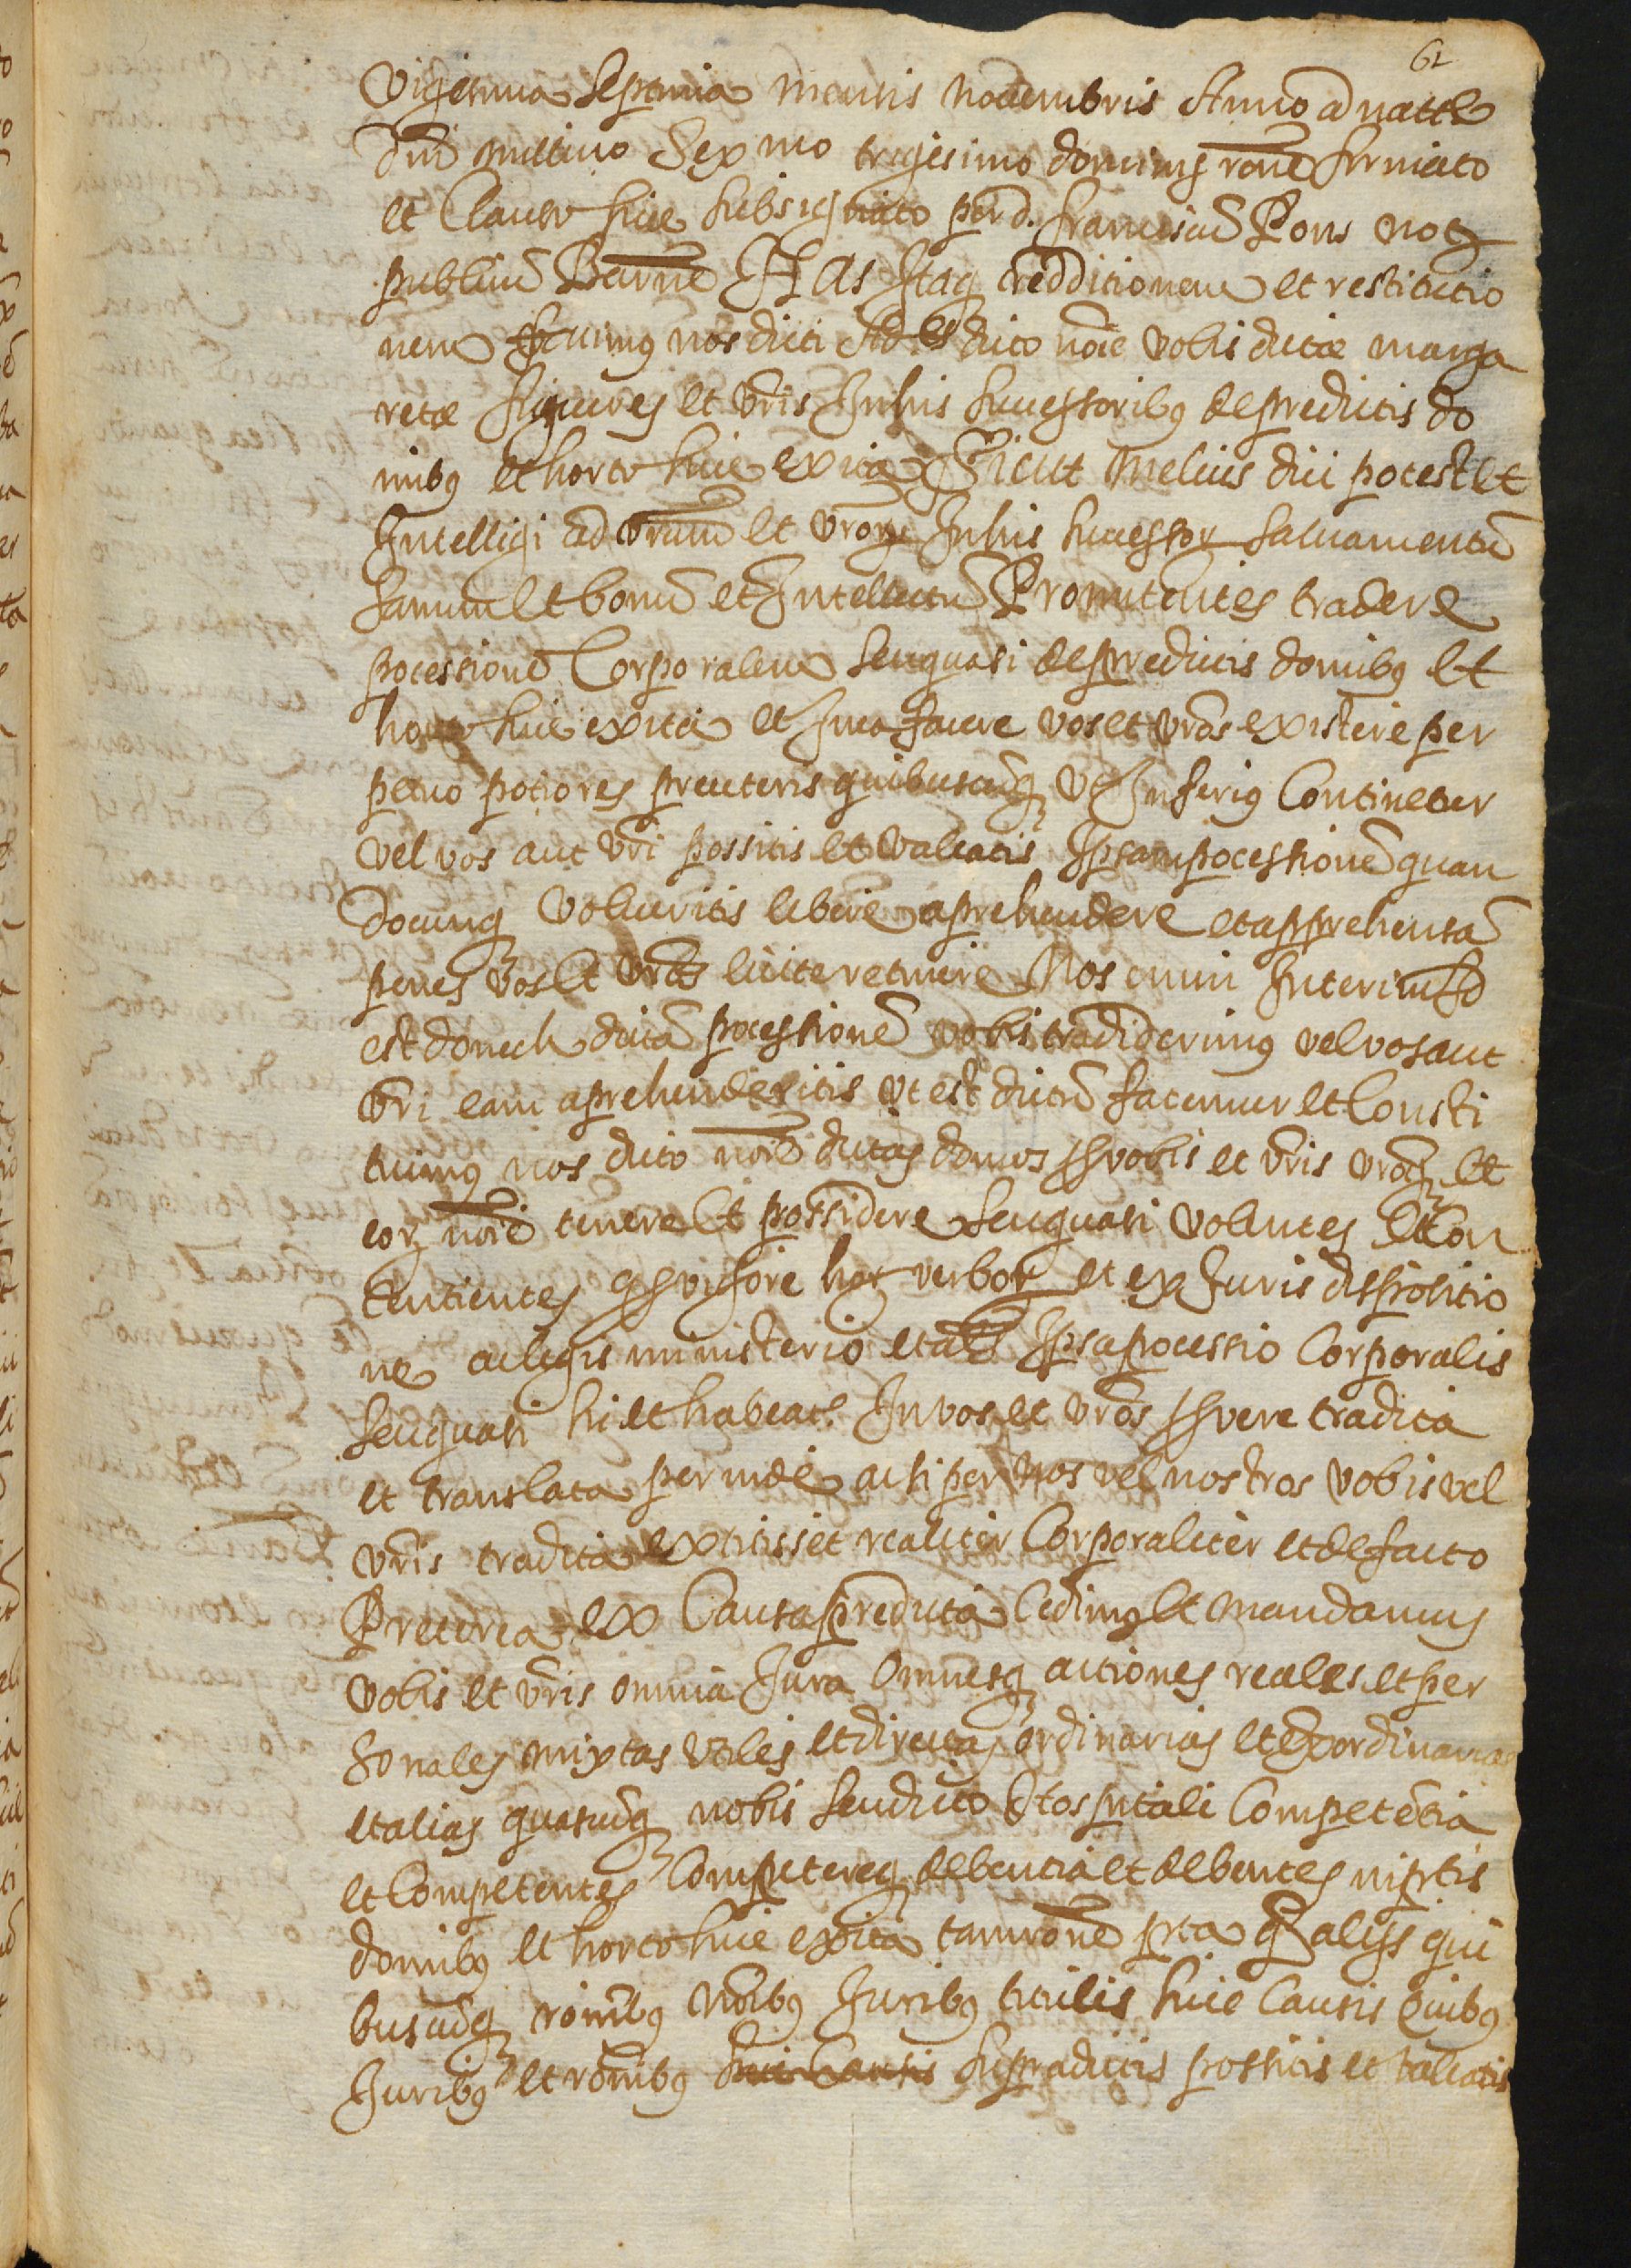 62
Vigesima Septima mensis Novembris Anno a natte
dñi millimo Sex mo trigesimo dominus rõne firmato
et Clauso sive subsignato per d. Franciscũ Pons not
publicũ Barne HAs Itaq redditionem et restitutio
nem facimus nos dicti dicto noĩe vobis dictæ marga
retæ Figueres et vr̃is In his successoribus de predictis do
mibus et horto sive exita Sicut melius dici potest et
Intelligi ad vr̃am et vr̃orum In his successor salvamentũ
sanum et bonũ et Intellectũ Promitentes tradere
pocessionẽ Corporalem seu quasi de predictis domibus et
horto sive exita et In ea facere vos et vr̃os existere per
petuo potiores preceteris quibuscũq ut Inferius Continetur
vel vos aut vr̃i possitis et valeatis Ipsam pocessionẽ quan
documq volueritis libere aprehendere et apprehensã
penes vos et vr̃os licite retinere Nos enim Interim Id
est donech dictã pocessionẽ vobis tradiderimus vel vos aut
vr̃i eam aprehenderitis ut est dictũ fatemur et Consti
tuimus nos dicto noĩe dictas domos vobis et vr̃is vr̃oq et
eor noĩe tenere et possidere seu quasi volentes et Con
sentientes vigore hor verbor et ex Juris dispositio
ne ac legis ministerio et als Ipsa pocessio Corporalis
seu quasi sit et habeat In vos et vr̃os vere tradita
et translata perinde ac si per nos vel nostros vobis vel
vr̃is tradita extitisset realiter Corporaliter et de facto
Preterea ex Causa predicta Cedimus et mandamus
vobis et vr̃is omnia Jura Omnesq actiones reales et per
sonales mixtas utiles et directas ordinarias et Exordinarias
et alias quascũq nobis seu dicto Hospitali Competẽtia
et Competentes Competereq debentia et debentes in pr̃tis
domibus et horto sive exita tam rõne pr̃ta q̃ alijs qui
buscũq rõnibus nõibus Juribus titulis sive Causis Quibus
Juribus et rõnibus sive Causis supradictis possitis et valeatis